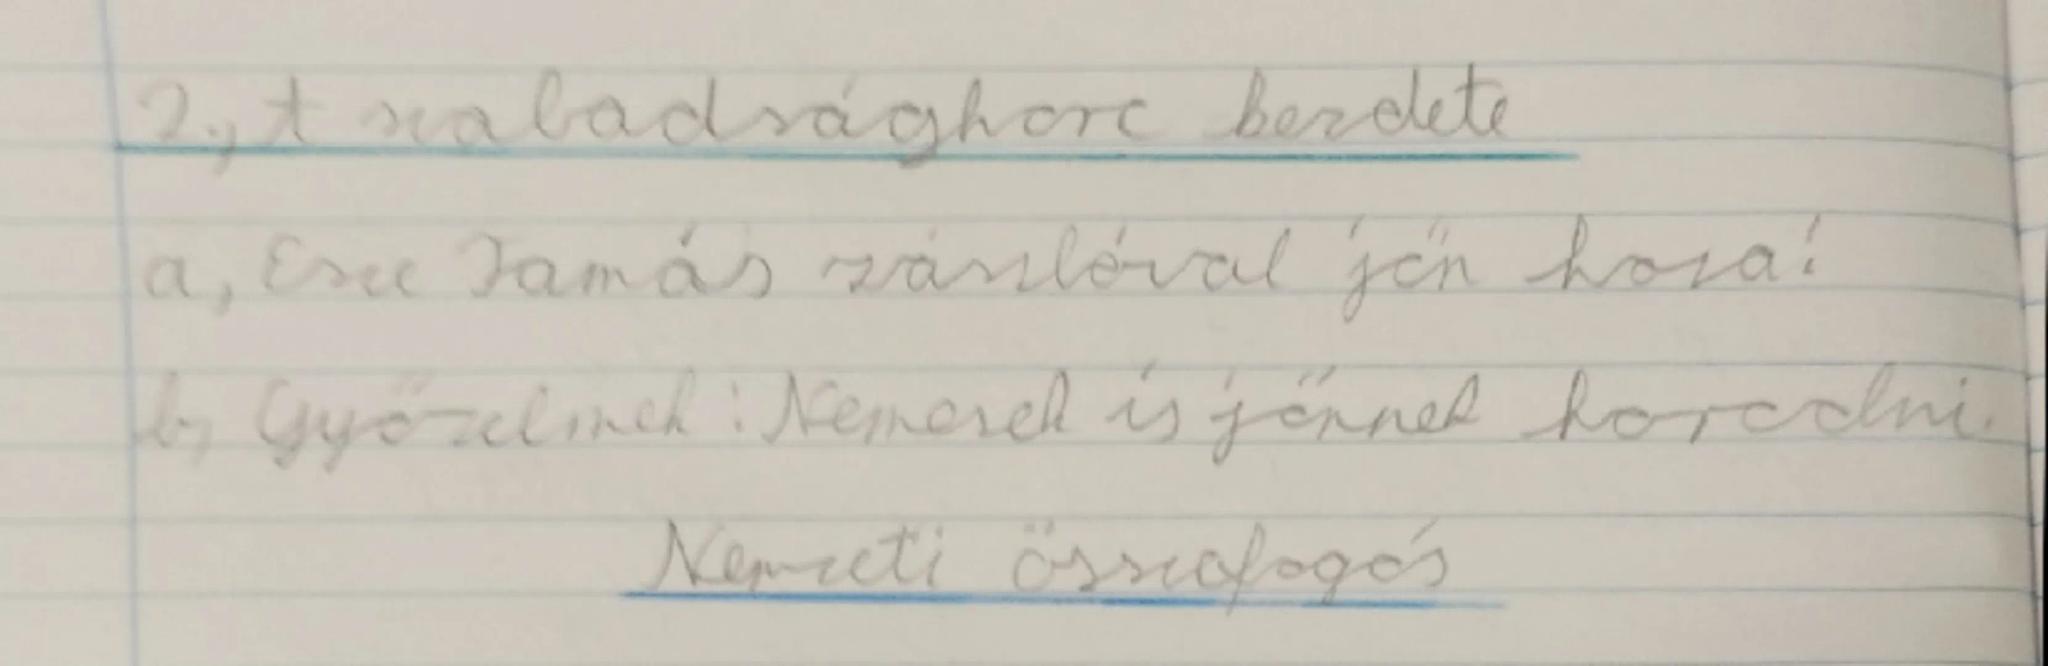 2., A szabadságharc kezdete
a, Esze Tamás zászlóval jön haza!
b, Győzelmek: Nemesek is jönnek harcolni.
Nemzeti összefogás